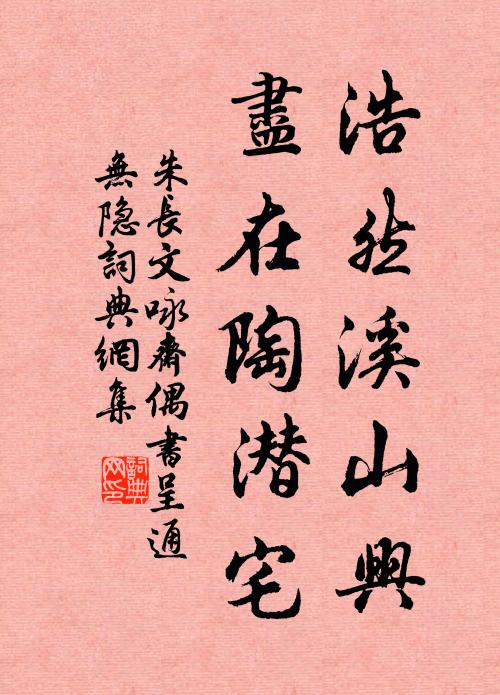 浩然溪山興
盡在陶潜宅
朱長文咏齋偶書呈通
無隐詞典網集
詞典網印